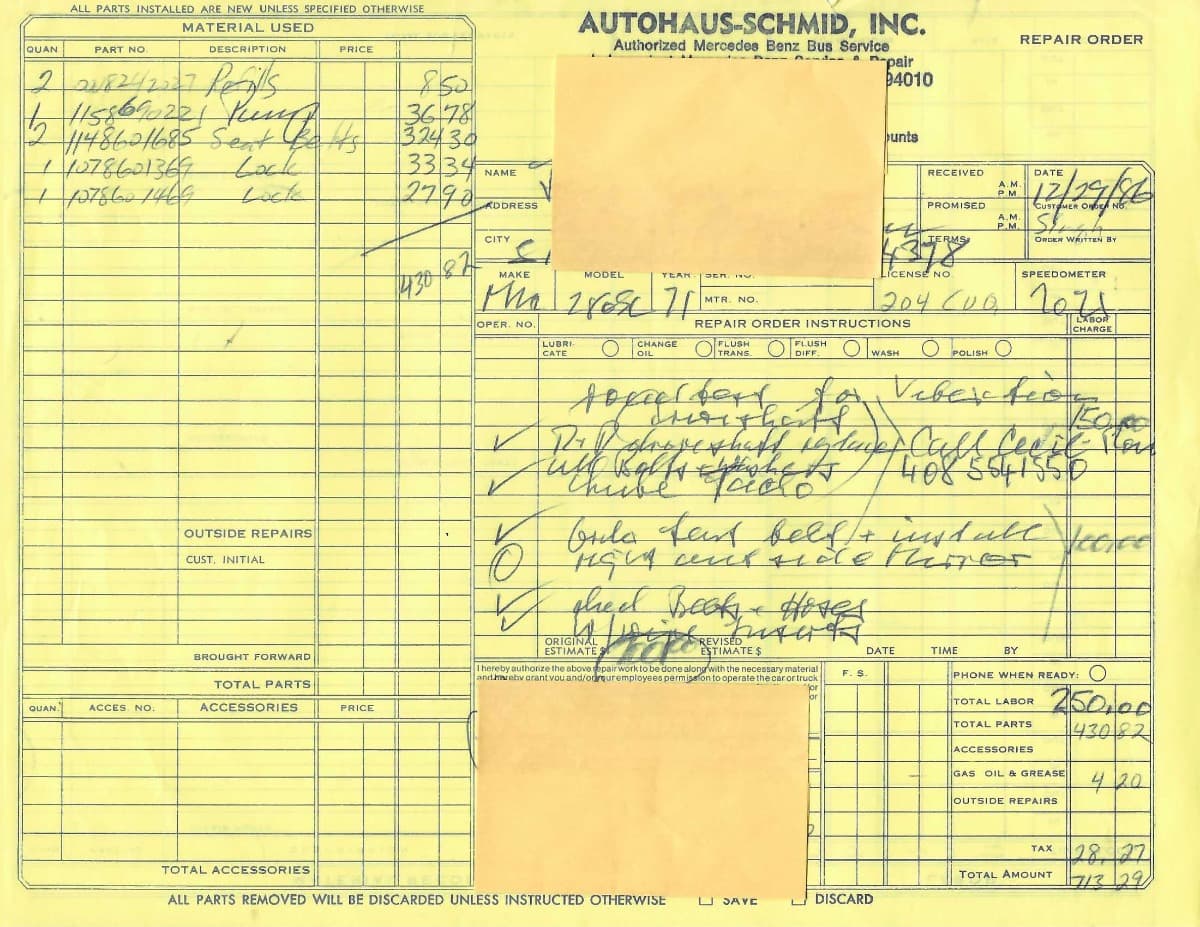 ALL PARTS INSTALLED ARE NEW UNLESS SPECIFIED OTHERWISE
MATERIAL USED
QUAN PART NO. DESCRIPTION PRICE
2 Refills 8 50
1 1158690221 Pump 36 78
2 1148601685 Seat Belts 324 30
1 1078601369 Lock 33 34
1 1078601469 Lock 27 90
430 82
OUTSIDE REPAIRS
CUST. INITIAL
BROUGHT FORWARD
TOTAL PARTS
QUAN. ACCES. NO. ACCESSORIES PRICE
TOTAL ACCESSORIES
AUTOHAUS-SCHMID, INC.
Authorized Mercedes Benz Bus Service
REPAIR ORDER
pair
94010
ounts
NAME
ADDRESS
CITY
RECEIVED A.M. P.M.
PROMISED A.M. P.M.
TERMS
4378
DATE 12/29/86
CUSTOMER ORDER NO.
Singh
ORDER WRITTEN BY
MAKE MODEL YEAR SER. NO. LICENSE NO. SPEEDOMETER
71 MTR. NO. 204 CUQ
OPER. NO. REPAIR ORDER INSTRUCTIONS LABOR CHARGE
LUBRI-CATE CHANGE OIL FLUSH TRANS. FLUSH DIFF. WASH POLISH
for Vibration
driveshaft 150,00
driveshaft Call Cecil
all Bolts 408 5541550
Lube
seat belt + install 100,00
right and side Mirror
+ Hoses
Inserts
ORIGINAL ESTIMATE $ REVISED ESTIMATE $ DATE TIME BY
I hereby authorize the above repair work to be done along with the necessary material
and hereby grant you and/or your employees permission to operate the car or truck
F. S.
PHONE WHEN READY:
TOTAL LABOR 250,00
TOTAL PARTS 430 82
ACCESSORIES
GAS OIL & GREASE 4 20
OUTSIDE REPAIRS
TAX 28,27
TOTAL AMOUNT 713 29
ALL PARTS REMOVED WILL BE DISCARDED UNLESS INSTRUCTED OTHERWISE SAVE DISCARD